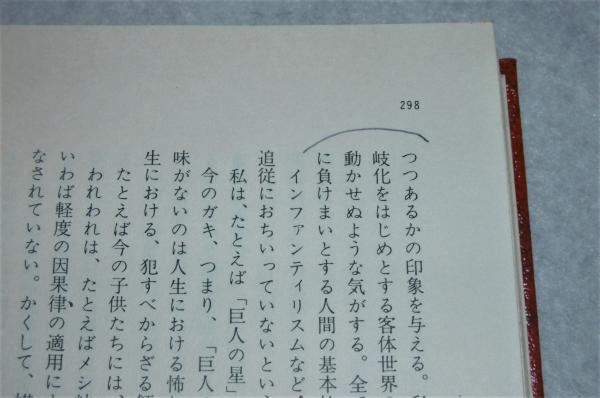 298
つつあるかの印象を与える。
岐化をはじめとする客体世界
動かせぬような気がする。全
に負けまいとする人間の基本
インファンティリスムなど
追従におちいっていないとい
私は、たとえば「巨人の星」
今のガキ、つまり、「巨人
味がないのは人生における怖
生における、犯すべからざる
たとえば今の子供たちには、
われわれは、たとえばメシ
いわば軽度の因果律の適用に
なされていない。かくして、